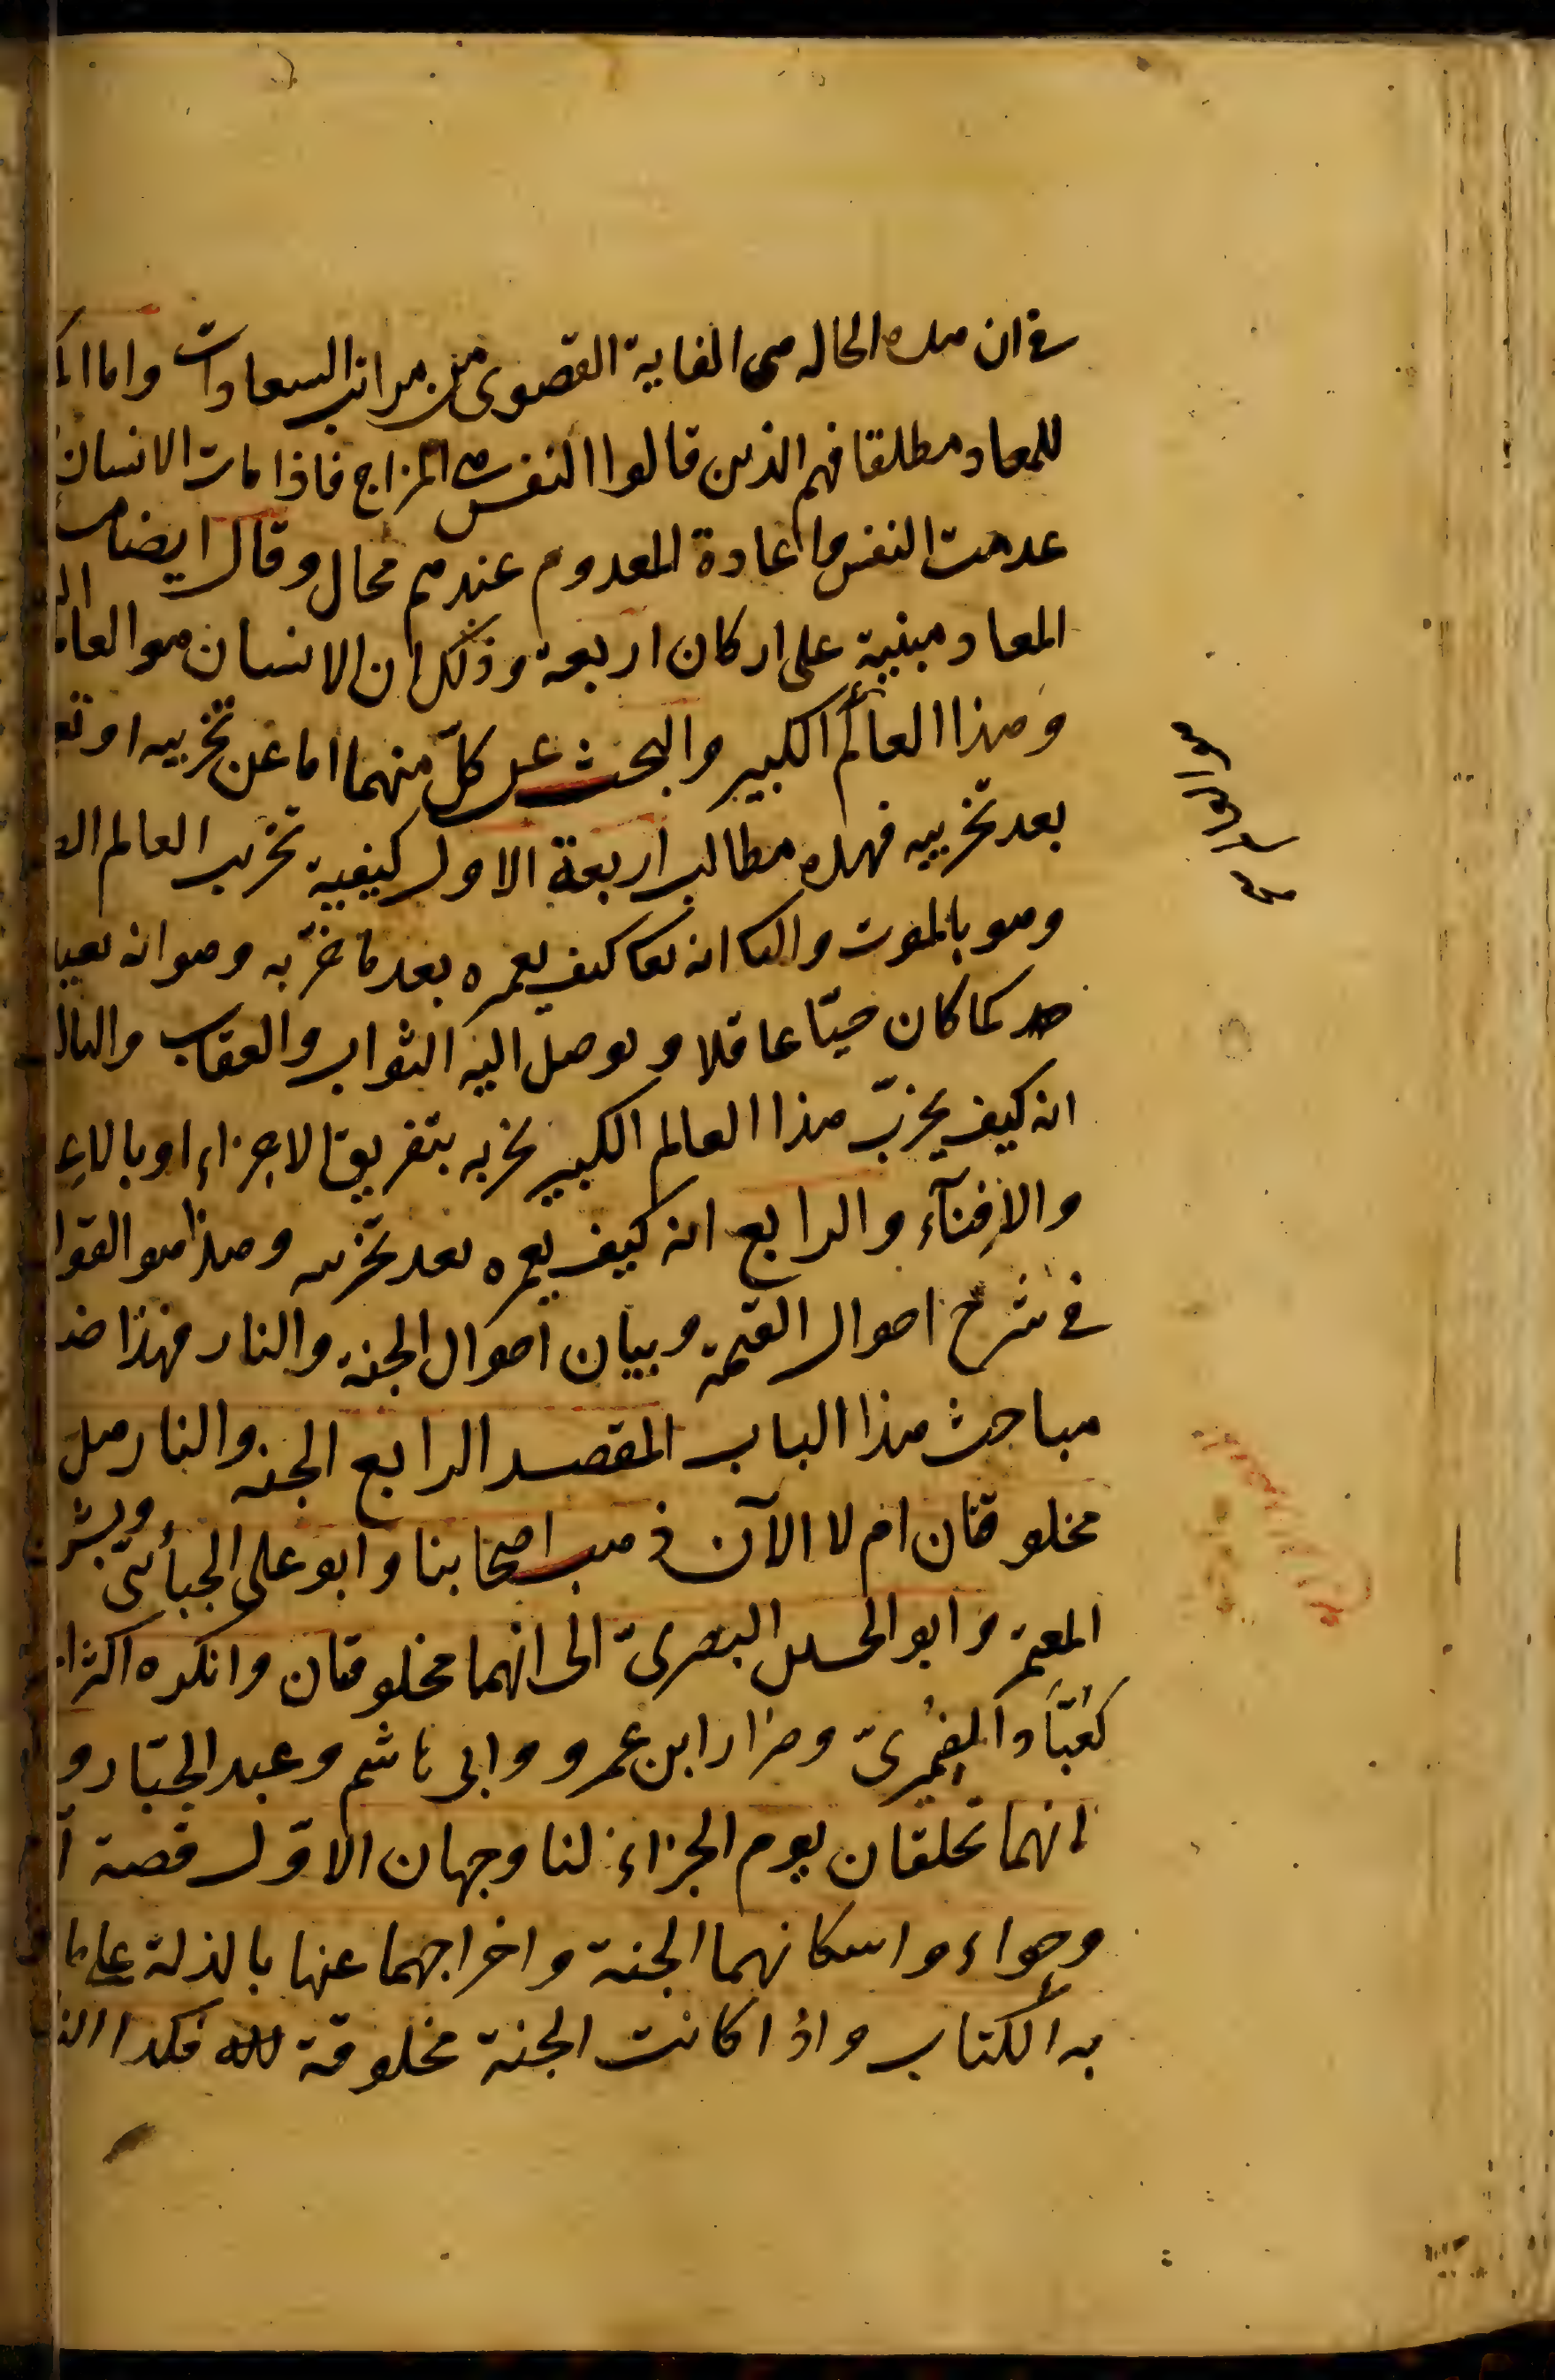 في ان هذه الحاله هى الغاية القصوى من مراتب السعادات واما
للمعاد مطلقا فهم الذين قالوا النفس هى المزاج فاذا مات الانسان
عدمت النفس واعادة المعدوم عندهم محال وقال ايضا
المعاد مبنية على اركان اربعة وذلك ان الانسان هو العا
وهذا العالم الكبير والبحث عن كلّ منهما اما عن تخريبه او
بعد تخريبه فهذه مطالب اربعة الاول كيفية تخرب العالم
وهو بالموت والثا انه تعا كيف يعمره بعد ما خرّبه وهو انه يعيد
كما كان حيّا عاقلا ويوصل اليه الثواب والعقاب والثال
انه كيف يخرّب هذا العالم الكبير يخربه بتفريق الاجزاء او بالاع
والاِفنآء والرابع انه كيف يعمره بعد تخريبه وهذا هو القول
في شرح احوال القيمة وبيان احوال الجنة والنار فهذا ضد
مباحث هذا الباب المقصد الرابع الجنة والنار هل
مخلوقتان ام لا الآن ذهب اصحابنا وابو على الجبأئىّ وبشر
المعتمر وابو الحسين البصرىّ الى انهما مخلوقتان وانكره اكثر
كعبّاد الضمرىّ وضرار ابن عمرو وابى هاشم وعبد الجبّار و
انهما تخلقان يوم الجزاء لنا وجهان الاوّل قصة آ
وحواء واسكانهما الجنة واخراجهما عنها بالذلة على ما
به الكتاب واذا كانت الجنة مخلوقة فكذا